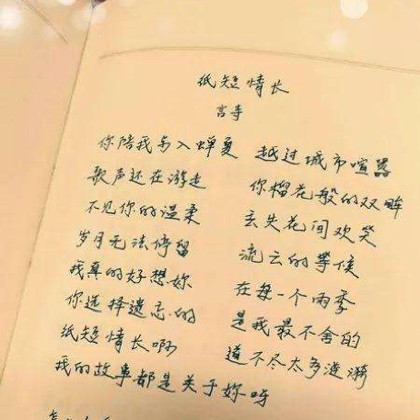 纸短情长
言寺
你陪我步入蝉夏 越过城市喧嚣
歌声还在游走 你榴花般的双眸
不见你的温柔 丢失花间欢笑
岁月无法停留 流云的等候
我真的好想妳 在每一个雨季
你选择遗忘的 是我最不舍的
纸短情长啊 道不尽太多涟漪
我的故事都是关于妳呀